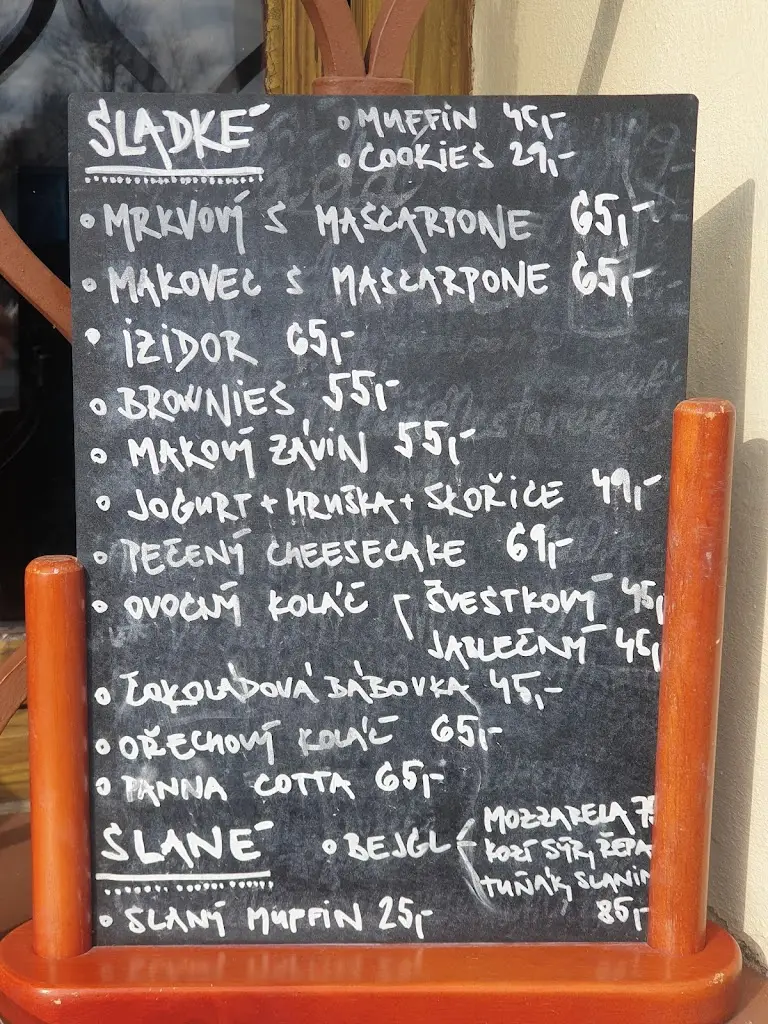 SLADKÉ
• MUFFIN 45,-
• COOKIES 29,-
• MRKVOVÝ S MASCARPONE 65,-
• MAKOVEC S MASCARPONE 65,-
• IZIDOR 65,-
• BROWNIES 55,-
• MAKOVÝ ZÁVIN 55,-
• JOGURT + HRUŠKA + SKOŘICE 49,-
• PEČENÝ CHEESECAKE 69,-
• OVOCNÝ KOLÁČ ŠVESTKOVÝ 45,
JABLEČNÝ 45,
• ČOKOLÁDOVÁ BÁBOVKA 45,-
• OŘECHOVÝ KOLÁČ 65,-
• PANNA COTTA 65,-
SLANÉ
• BEJGL MOZZARELA 75
KOZÍ SÝR, ŘEPA
TUŇÁK, SLANIN
85,-
• SLANÝ MUFFIN 25,-